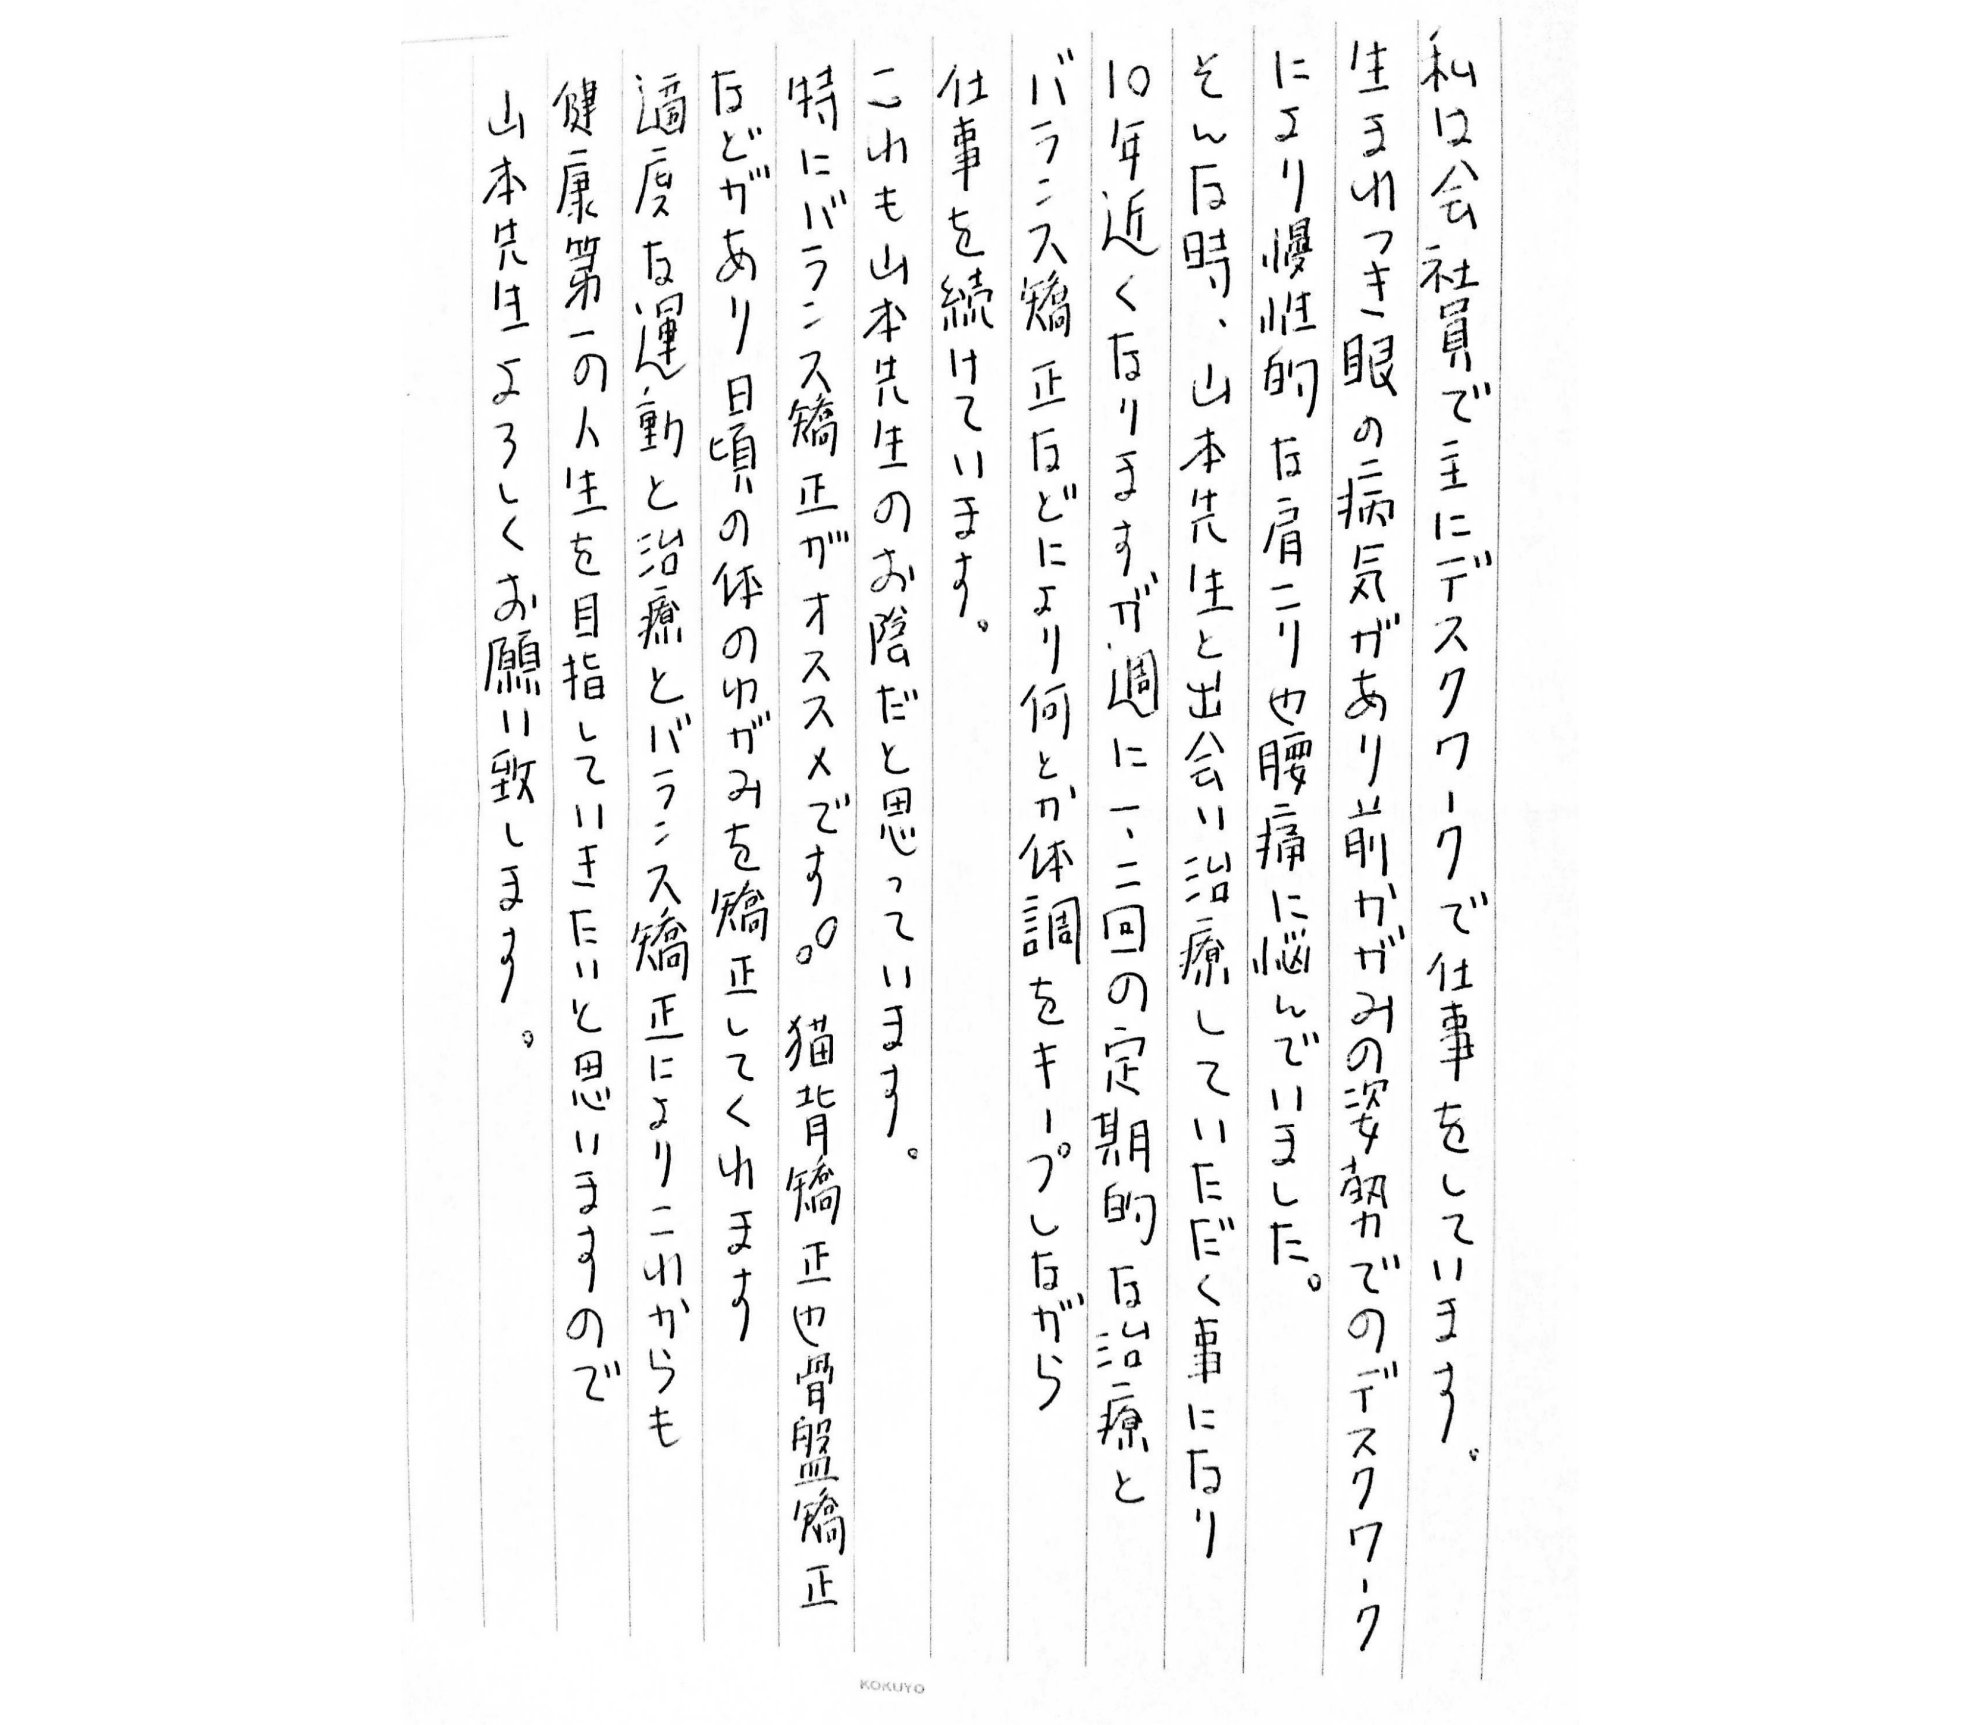 私は会社員で主にデスクワークで仕事をしています。
生まれつき眼の病気があり前かがみの姿勢でのデスクワーク
により慢性的な肩こりや腰痛に悩んでいました。
そんな時、山本先生と出会い治療していただく事になり
10年近くなりますが週に一、二回の定期的な治療と
バランス矯正などにより何とか体調をキープしながら
仕事を続けています。
これも山本先生のお陰だと思っています。
特にバランス矯正がオススメです。。猫背矯正や骨盤矯正
などがあり日頃の体のゆがみを矯正してくれます
適度な運動と治療とバランス矯正によりこれからも
健康第一の人生を目指していきたいと思いますので
山本先生よろしくお願い致します。
KOKUYO